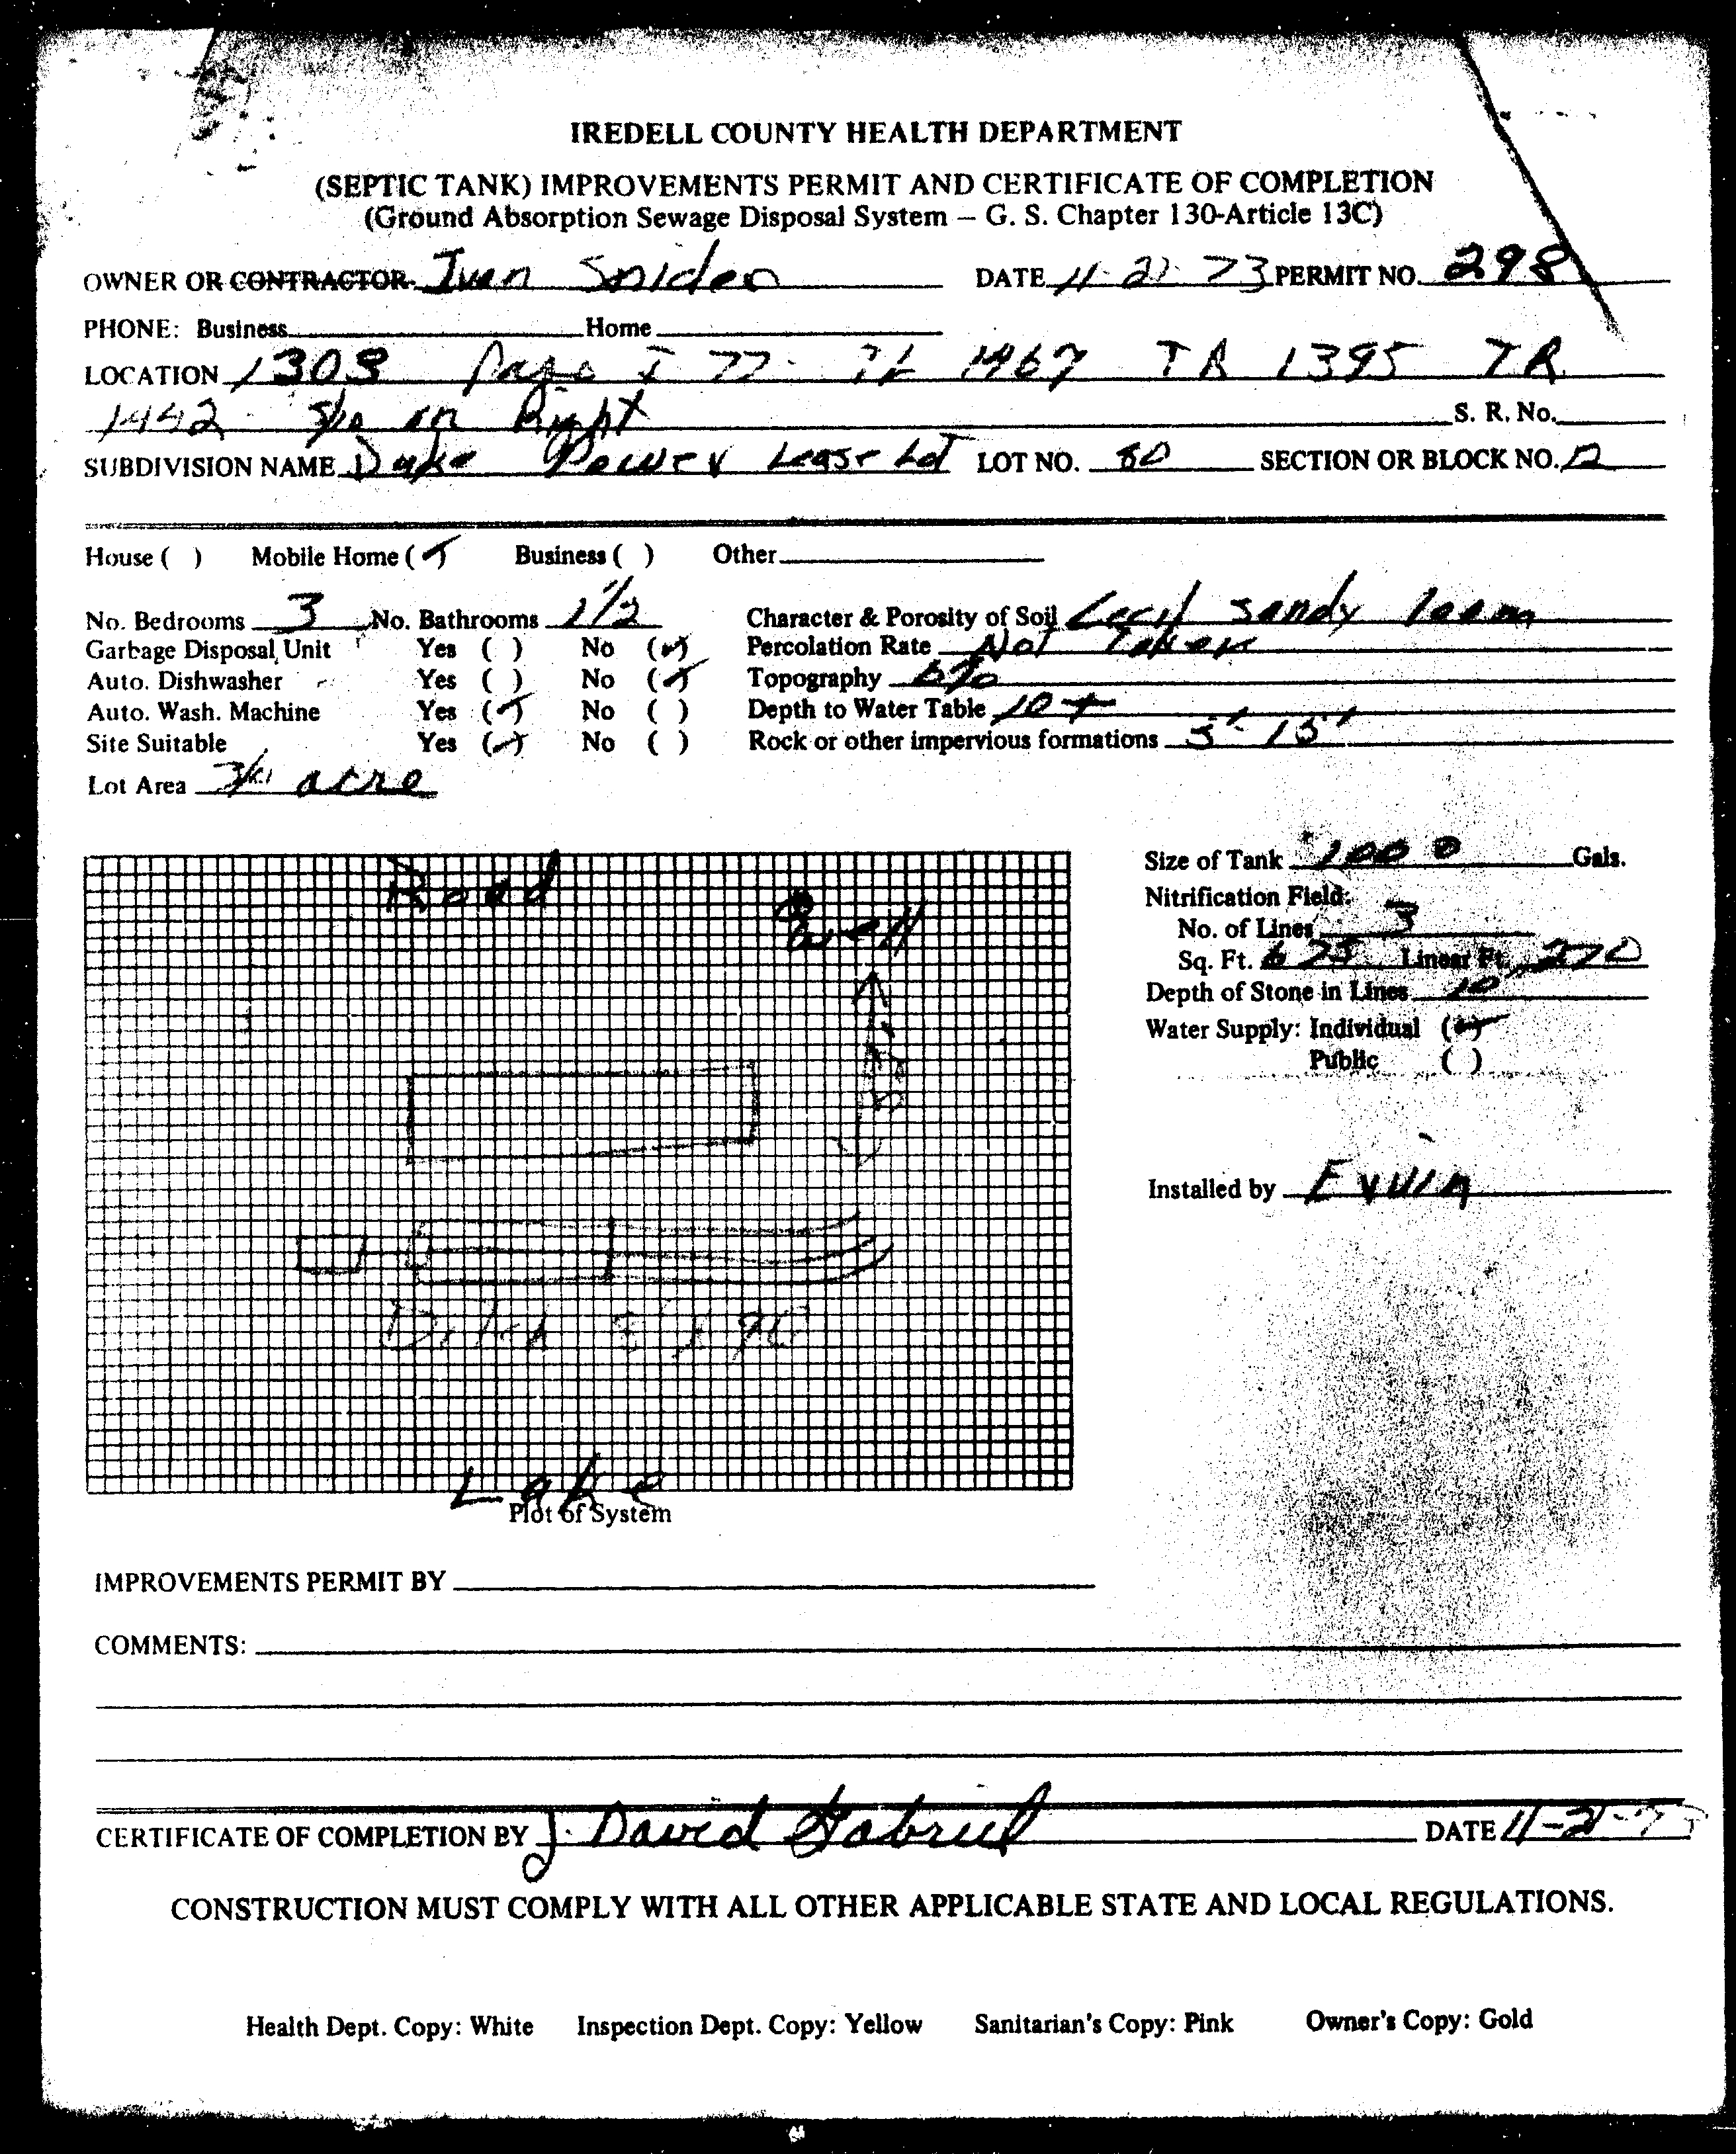 IREDELL COUNTY HEALTH DEPARTMENT
(SEPTIC TANK) IMPROVEMENTS PERMIT AND CERTIFICATE OF COMPLETION
(Ground Absorption Sewage Disposal System – G. S. Chapter 130-Article 13C)
OWNER OR CONTRACTOR Ivan Snider DATE 11-21-73 PERMIT NO. 298
PHONE: Business Home
LOCATION 1303 Pass I 77 TL 1467 TR 1395 TR
1442 on Right S. R. No.
SUBDIVISION NAME Duke Power Lease Lot LOT NO. 80 SECTION OR BLOCK NO.
House ( ) Mobile Home (✓) Business ( ) Other
No. Bedrooms 3 No. Bathrooms 1 1/2 Character & Porosity of Soil Cecil sandy loam
Garbage Disposal Unit Yes ( ) No (✓) Percolation Rate Not Taken
Auto. Dishwasher Yes ( ) No (✓) Topography 6%
Auto. Wash. Machine Yes (✓) No ( ) Depth to Water Table 10 +
Site Suitable Yes (✓) No ( ) Rock or other impervious formations 5' 15'
Lot Area 3/4 acre
Road
well
Size of Tank 1000 Gals.
Nitrification Field:
No. of Lines 3
Sq. Ft. 675 Linear Ft. 270
Depth of Stone in Lines 10
Water Supply: Individual (✓)
Public ( )
Installed by
Ditch 3 x 90
Lake
Plot of System
IMPROVEMENTS PERMIT BY
COMMENTS:
CERTIFICATE OF COMPLETION BY J. David Gabriel DATE 11-21-73
CONSTRUCTION MUST COMPLY WITH ALL OTHER APPLICABLE STATE AND LOCAL REGULATIONS.
Health Dept. Copy: White Inspection Dept. Copy: Yellow Sanitarian's Copy: Pink Owner's Copy: Gold